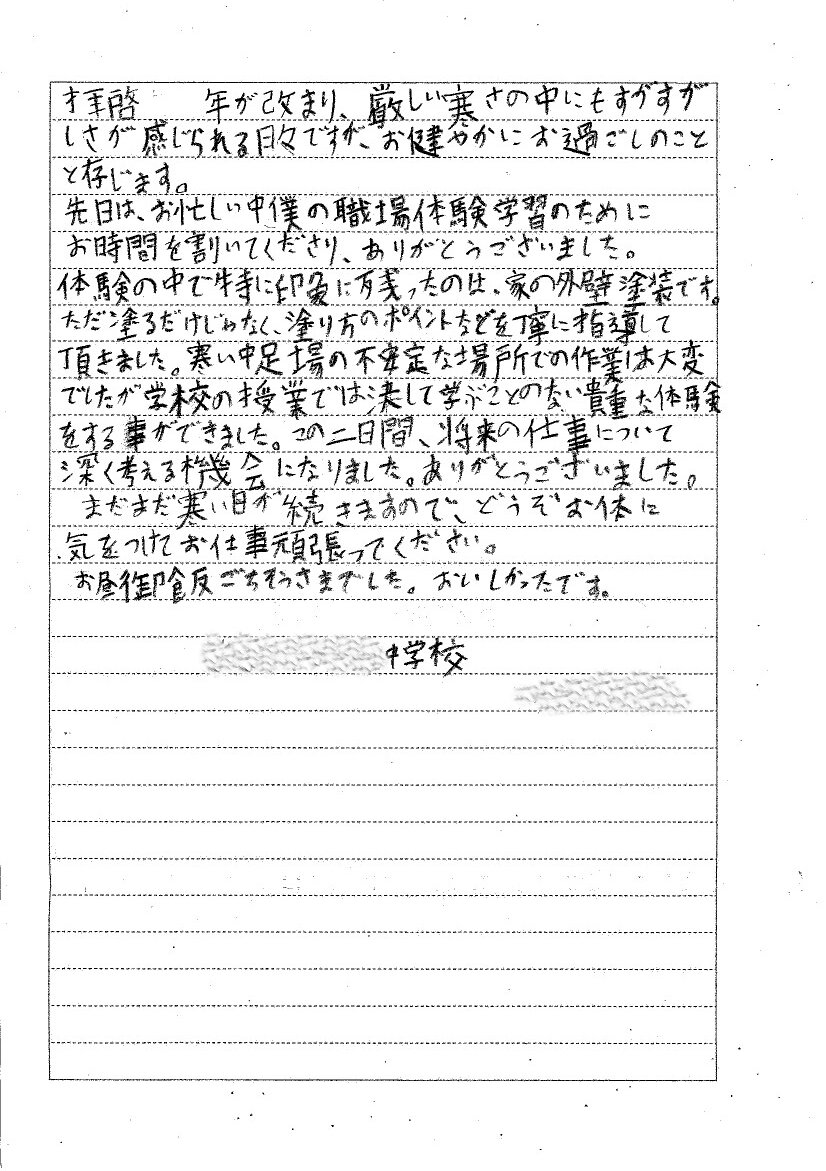 拝啓　　年が改まり、厳しい寒さの中にもすがすが
しさが感じられる日々ですが、お健やかにお過ごしのこと
と存じます。
先日は、お忙しい中僕の職場体験学習のために
お時間を割いてくださり、ありがとうございました。
体験の中で特に印象に残ったのは、家の外壁塗装です。
ただ塗るだけじゃなく、塗り方のポイントなどを丁寧に指導して
頂きました。寒い中足場の不安定な場所での作業は大変
でしたが学校の授業では決して学ぶことのない貴重な体験
をする事ができました。この二日間、将来の仕事について
深く考える機会になりました。ありがとうございました。
まだまだ寒い日が続きますので、どうぞお体に
気をつけてお仕事頑張ってください。
お昼御飯ごちそうさまでした。おいしかったです。
中学校